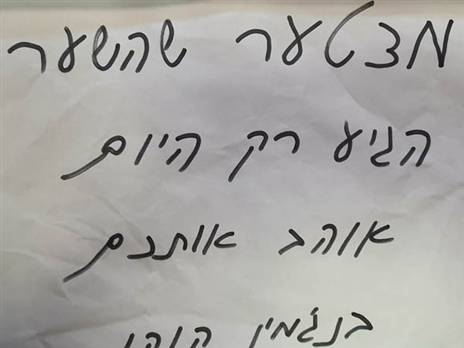 מצטער שהשער
הגיע רק היום
אוהב אתכם
בנג'מין הוהו